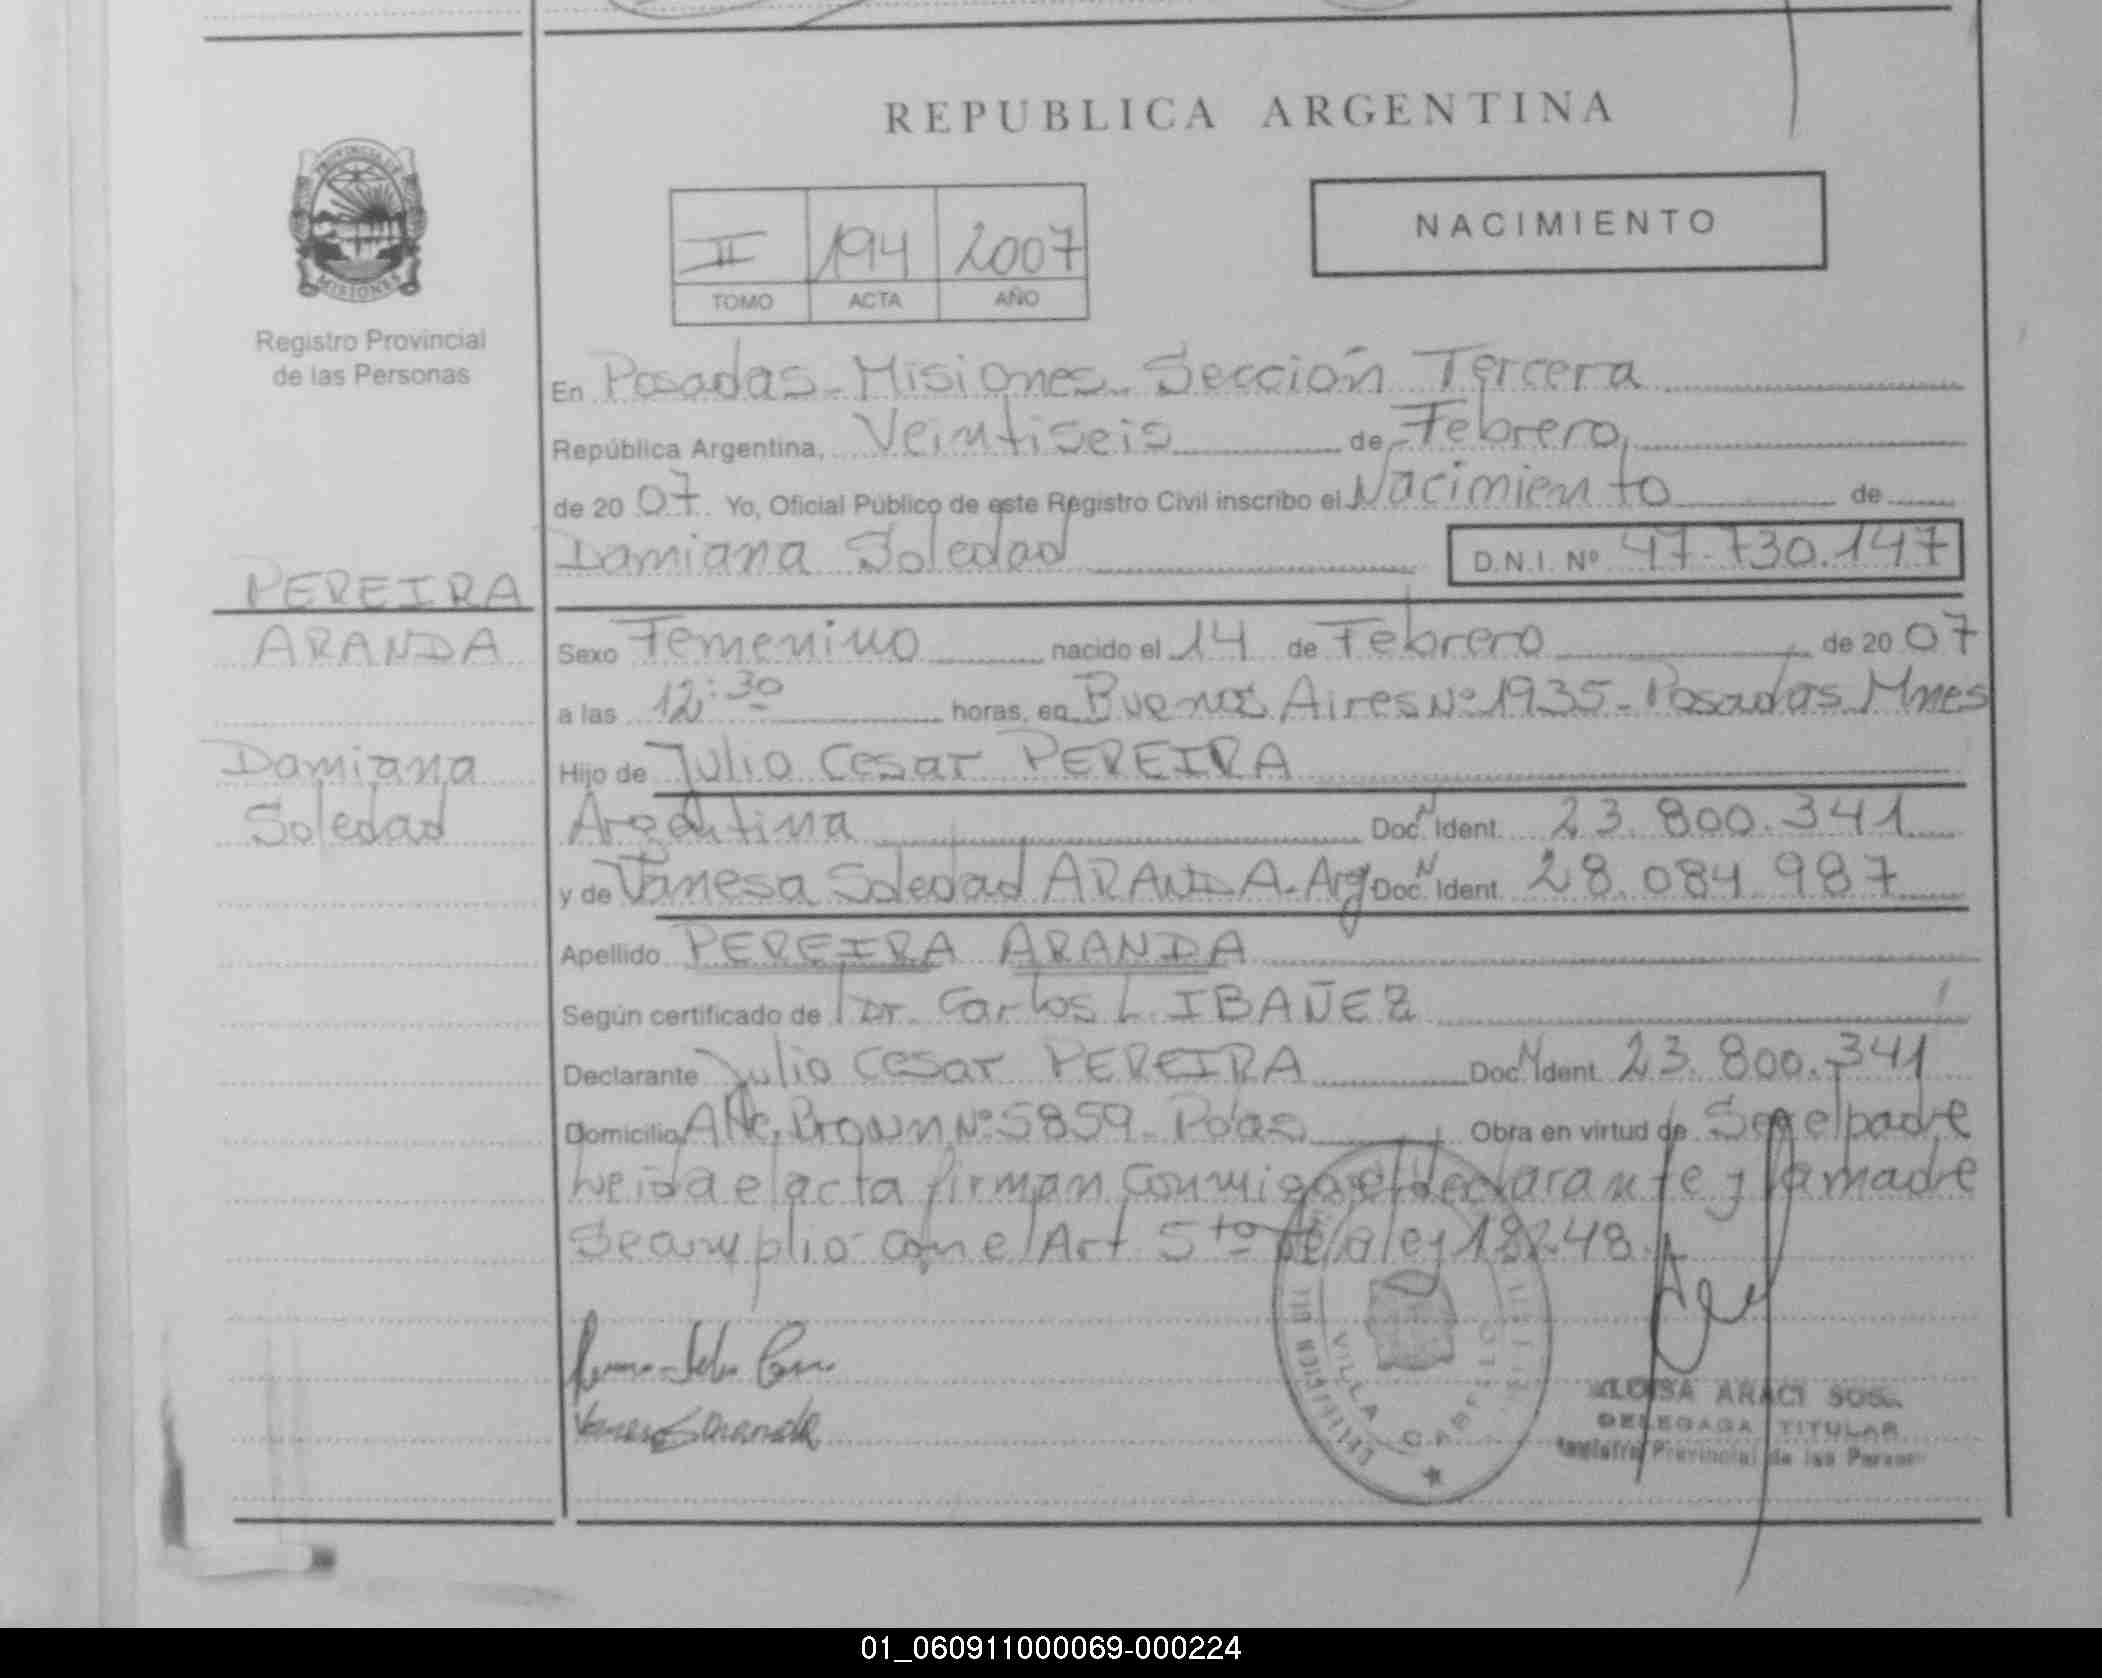 REPUBLICA ARGENTINA
PROVINCIA DE
MISIONES
Registro Provincial
de las Personas
II 194 2007
TOMO ACTA AÑO
NACIMIENTO
En Posadas - Misiones - Sección Tercera
República Argentina, Veintiseis de Febrero,
de 20 07 Yo, Oficial Público de este Registro Civil inscribo el Nacimiento de
Damiana Soledad D.N.I. Nº 47.730.147
PEREIRA
ARANDA
Damiana
Soledad
Sexo Femenino nacido el 14 de Febrero de 20 07
a las 12:30 horas, en Buenos Aires Nº 1935 - Posadas Mnes
Hijo de Julio Cesar PEREIRA
Argentina Doc. N Ident. 23.800.341
y de Vanesa Soledad ARANDA - Arg Doc. N Ident. 28.084.987
Apellido PEREIRA ARANDA
Según certificado de Dr. Carlos L. IBAÑEZ
Declarante Julio Cesar PEREIRA Doc. N Ident. 23.800.341
Domicilio Alte. Brown Nº 5859 - Pdas Obra en virtud de Ser el padre
Leida el acta firman Conmigo el declarante y la madre
Se cumplió con el Art 5to de la ley 18248.
VILLA CABELLO
ARACI SOSA
DELEGADA TITULAR
Registro Provincial de las Person
01_060911000069-000224